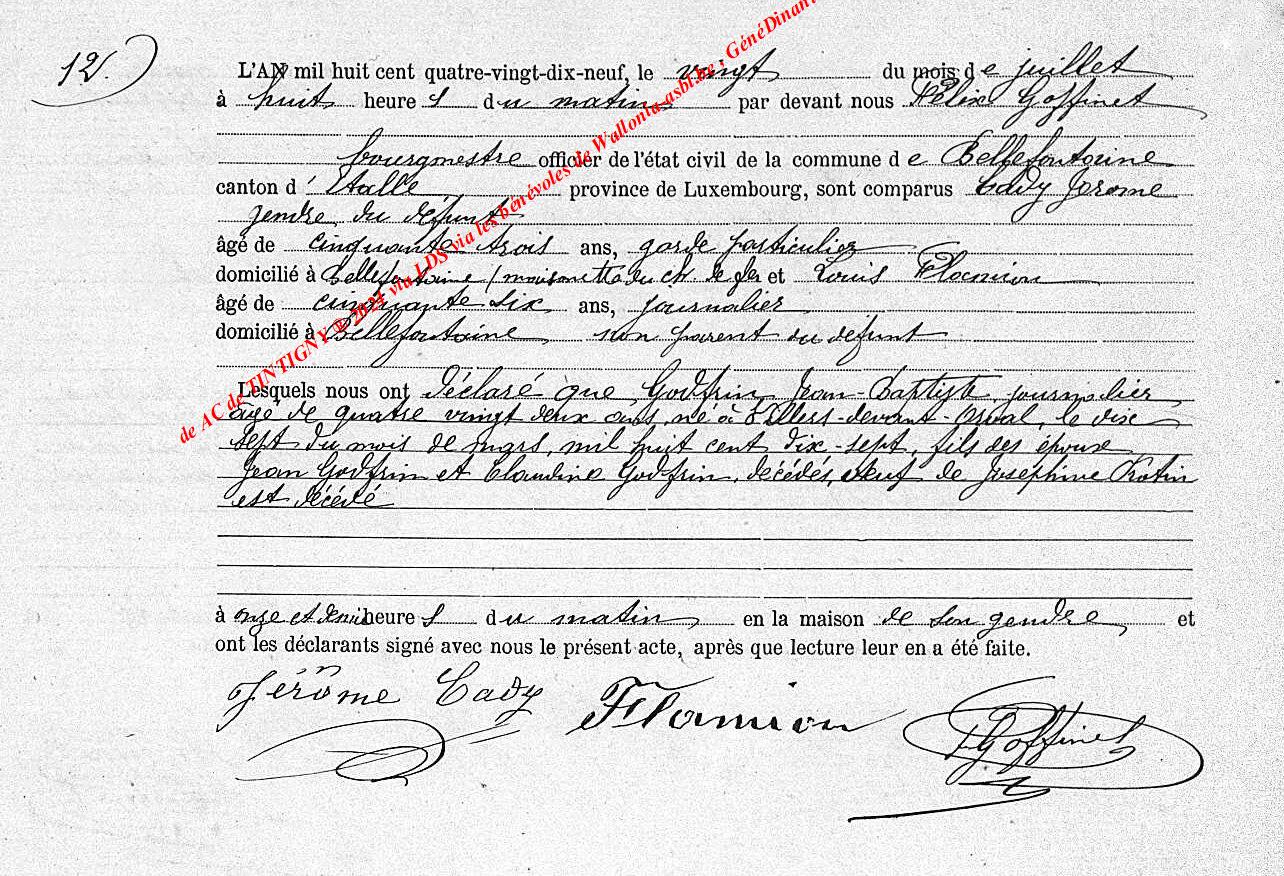 12.
L'AN mil huit cent quatre-vingt-dix-neuf, le vingt du mois de juillet
à huit heures du matin par devant nous Félix Goffinet
bourgmestre officier de l'état civil de la commune de Bellefontaine
canton d'Etalle province de Luxembourg, sont comparus Cady Jerome
gendre du défunt
âgé de cinquante trois ans, garde particulier
domicilié à Bellefontaine / maisonnette du ch. de fer et Louis Flamion
âgé de cinquante six ans, journalier
domicilié à Bellefontaine non parent du défunt
Lesquels nous ont déclaré que Godfrin Jean-Baptiste journalier
âgé de quatre vingt deux ans, né à Villers-devant-Orval, le dix
sept du mois de mars, mil huit cent dix-sept, fils des époux
Jean Godfrin et Claudine Godfrin, décédés, veuf de Joséphine
est décédé
à onze et demi heures du matin en la maison de son gendre et
ont les déclarants signé avec nous le présent acte, après que lecture leur en a été faite.
Jérôme Cady Flamion Goffinet
de AC de TINTIGNY © 2024 via LDS via les bénévoles de Wallonia-asbl.be ; GénéDinant